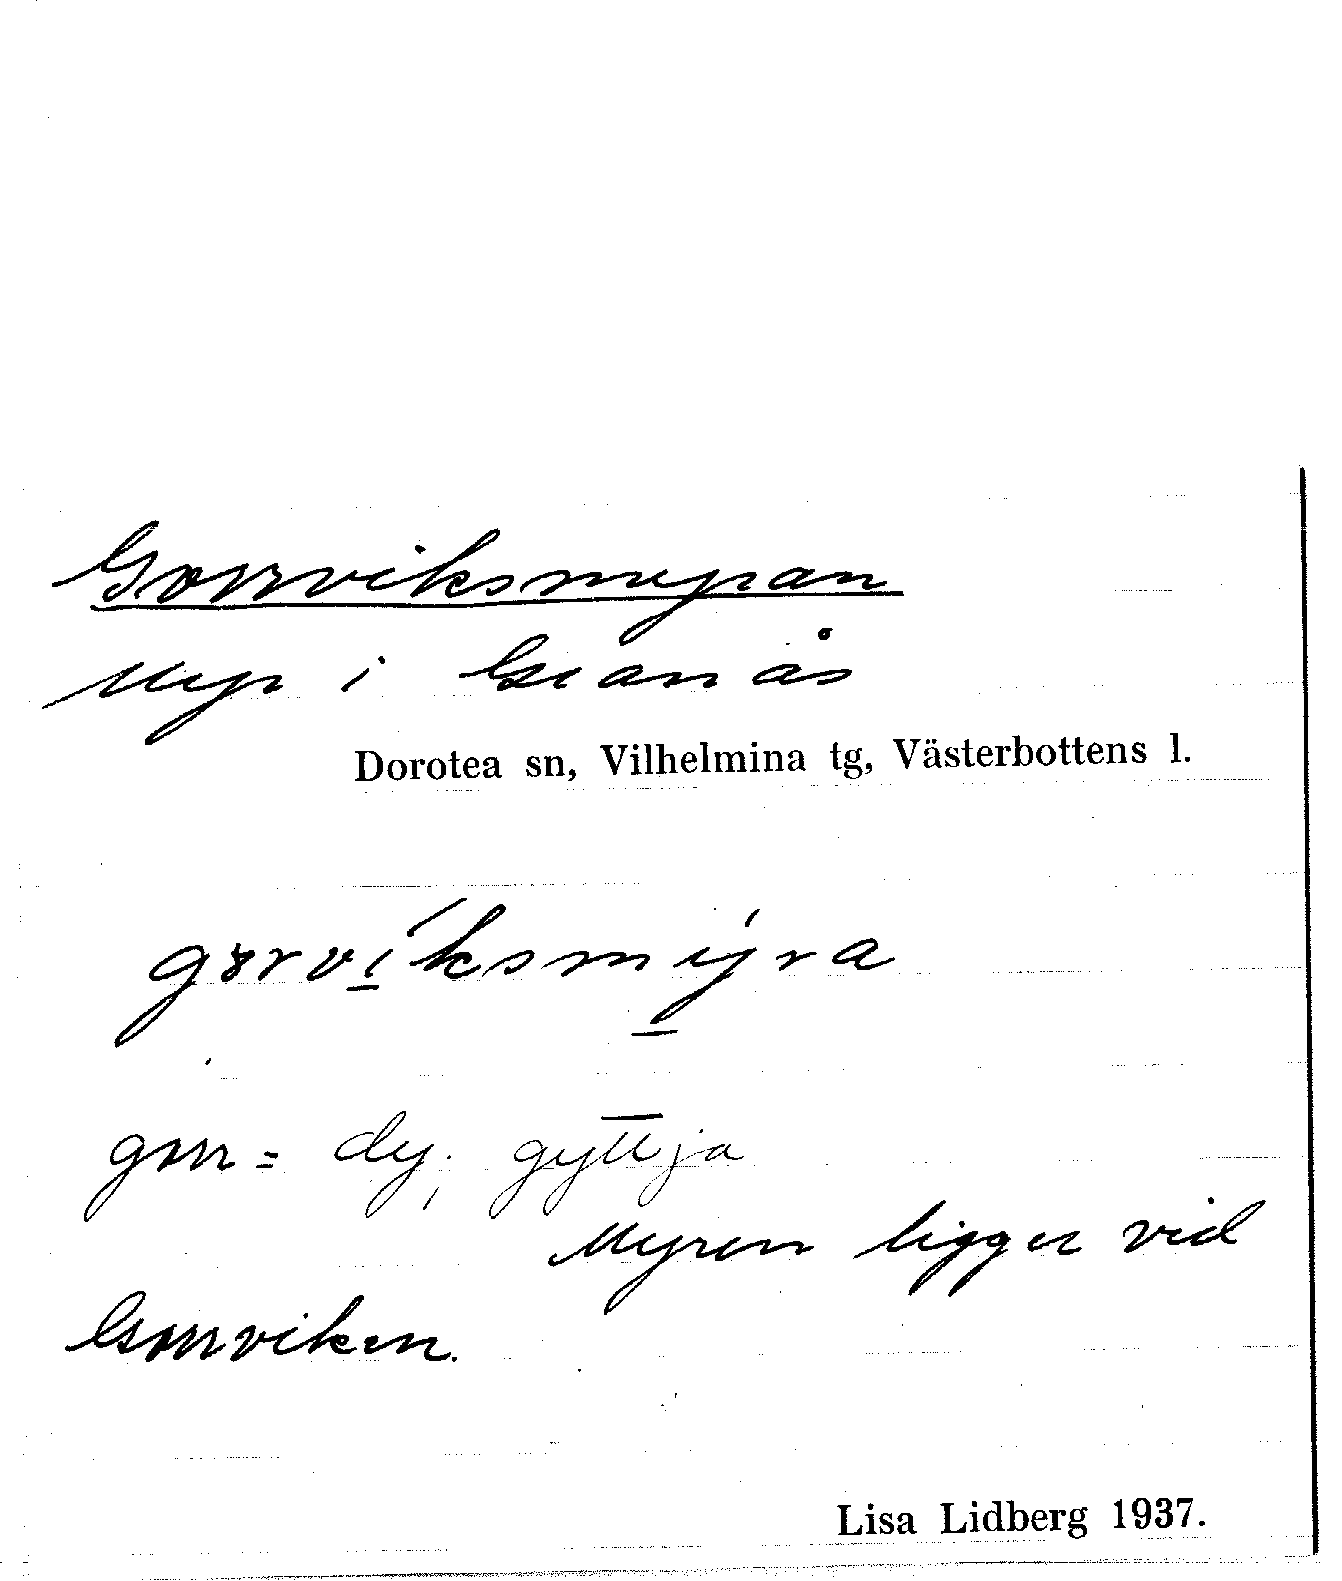 Gorrviksmyran
Myr i Granås
Dorotea sn, Vilhelmina tg, Västerbottens l.
gorvíksmýra
gorr = dy, gyttja
Myren ligger vid
Gorrviken.
Lisa Lidberg 1937.